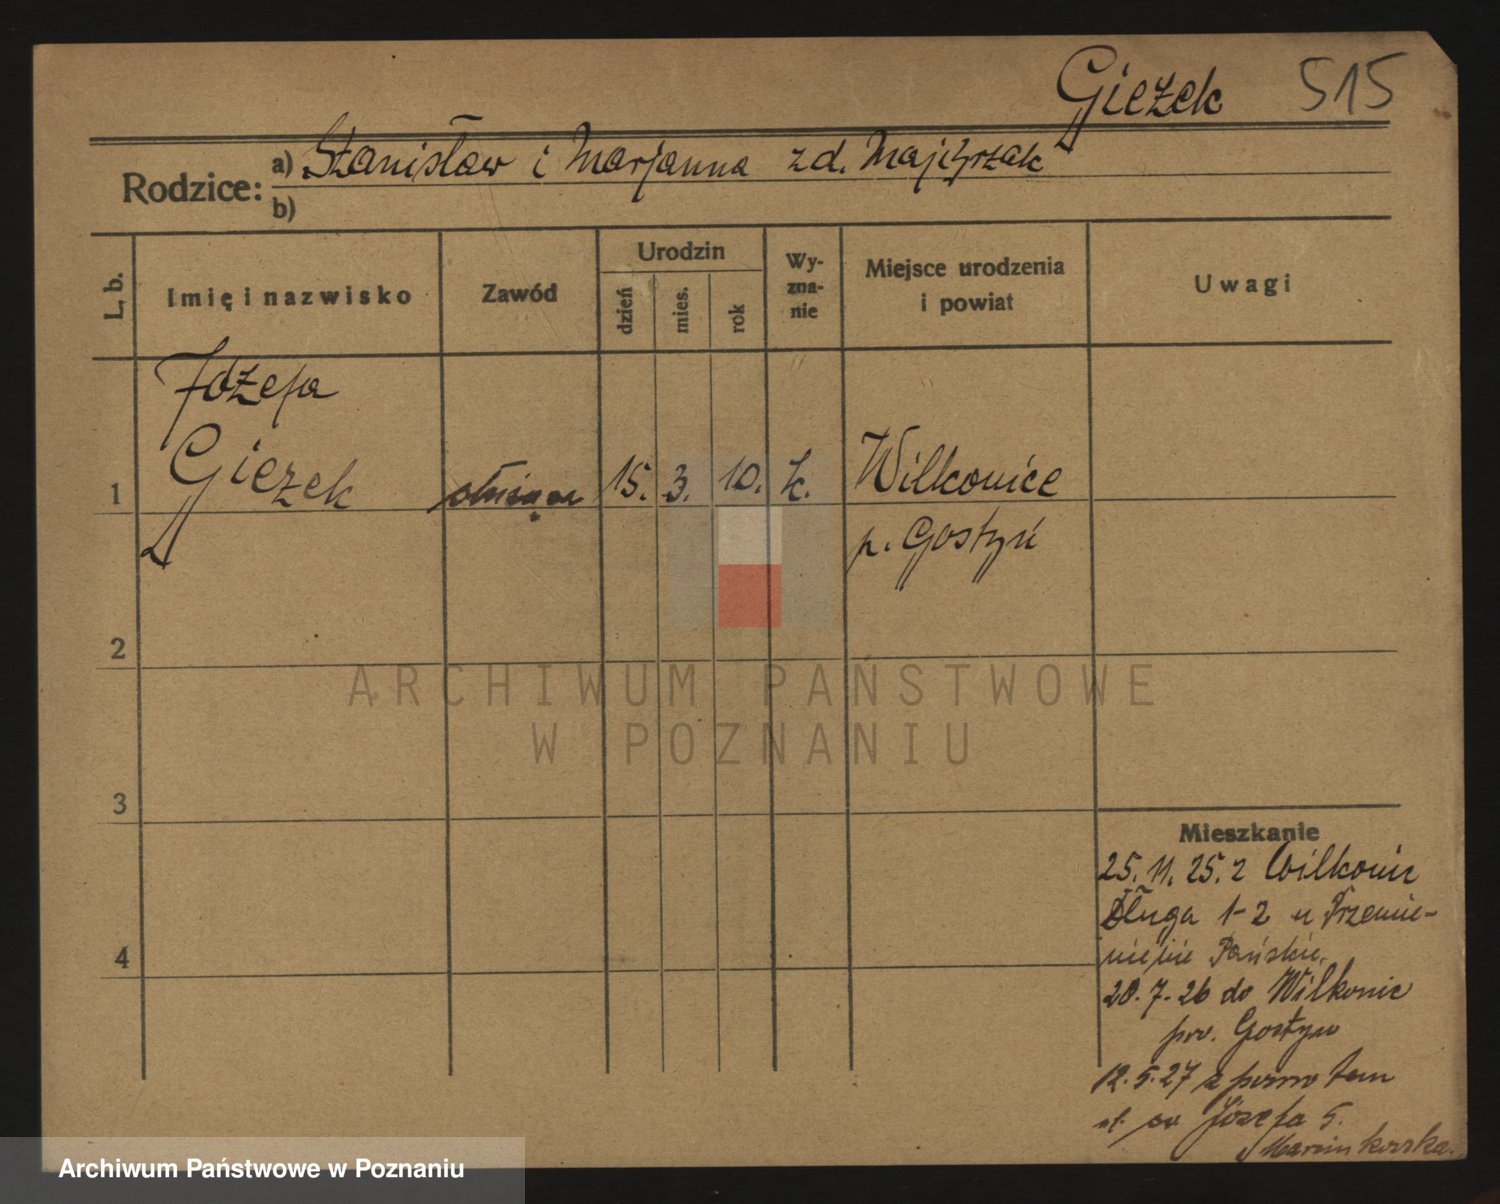 Gieżek 515
Rodzice: a) Stanisław i Marjanna zd. Majchrzak
b)
L. b. Imię i nazwisko Zawód Urodzin dzień mies. rok Wy-zna-nie Miejsce urodzenia i powiat Uwagi
Józefa
1 Gieżek służąca 15. 3. 10. k. Wilkonice
p. Gostyń
2
3
4
Mieszkanie
25. 11. 25. z Wilkonic
Długa 1-2 u Przemie-
nienie Pańskie.
20. 7. 26 do Wilkonic
pow. Gostyn
12. 5. 27 z powrotem
ul. św Józefa 5.
Marcinkowska.
ARCHIWUM PAŃSTWOWE
W POZNANIU
Archiwum Państwowe w Poznaniu